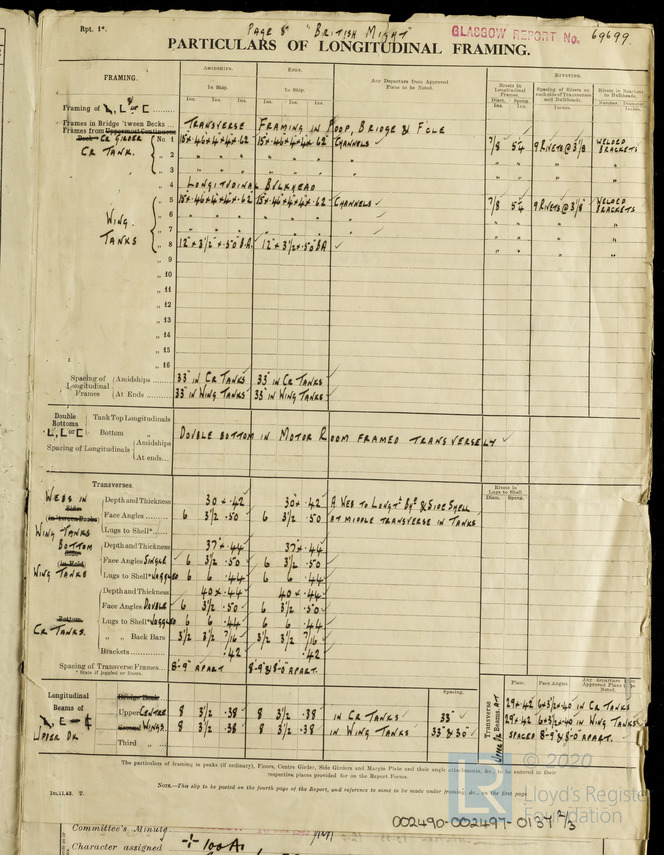 Rpt. 1*. Page 8 "British Might" GLASGOW REPORT No. 69699
PARTICULARS OF LONGITUDINAL FRAMING.
FRAMING. AMIDSHIPS. ENDS. Any Departure from Approved Plans to be Noted. RIVETING.
In Ship. In Ship. Rivets in Longitudinal Frames. Spacing of Rivets on Bulkheads. Rivets in Brackets to Bulkheads.
Ins. Ins. Ins. Ins. Ins. Ins. Diam. Ins. Spcng. Ins. Inches. Number. Diameter Ins.
Framing of L, L or C
Frames in Bridge 'tween Decks TRANSVERSE FRAMING IN POOP, BRIDGE & FCLE
Frames from Uppermost Continuous
Deck Cr GIRDER No. 1 15×.46×4×4×.62 15×.46×4×4×.62 CHANNELS 7/8 5¼ 9 RIVETS @ 3 1/8 WELDED BRACKETS
CR TANK. „ 2 " " " " "
„ 3 " " " " "
„ 4 LONGITUDINAL BULKHEAD
„ 5 15×.46×4×4×.62 15×.46×4×4×.62 CHANNELS 7/8 5¼ 9 RIVETS @ 3 1/8 WELDED BRACKETS
WING „ 6 " " " " "
TANKS „ 7 " " " " "
„ 8 12" × 3½" × .50 B.A. 12" × 3½ × .50 BA
„ 9
„ 10
„ 11
„ 12
„ 13
„ 14
„ 15
„ 16
Spacing of Longitudinal Frames Amidships 33" IN CR TANKS 33" IN CR TANKS
At Ends 33" IN WING TANKS 33" IN WING TANKS
Double Bottoms L, L or C Tank Top Longitudinals
Bottom „ DOUBLE BOTTOM IN MOTOR ROOM FRAMED TRANSVERSELY
Spacing of Longitudinals Amidships
At ends
Transverses. Rivets in Lugs to Shell. Diam. Spcng.
WEBS IN Side (in 'tween Decks) WING TANKS Depth and Thickness 30 × .42 30 × .42 A WEB TO LONGTL BHD & SIDE SHELL
Face Angles 6 3½ .50 6 3½ .50 AT MIDDLE TRANSVERSE IN TANKS
Lugs to Shell*
BOTTOM Side (in Hold) WING TANKS Depth and Thickness 37 × .44 37 × .44
Face Angles SINGLE 6 3½ .50 6 3½ .50
Lugs to Shell* JOGGLED 6 6 .44 6 6 .44
Bottom CR TANKS. Depth and Thickness 40 × .44 40 × .44
Face Angles DOUBLE 6 3½ .50 6 3½ .50
Lugs to Shell* JOGGLED 6 6 .44 6 6 .44
„ „ Back Bars 3½ 3½ 7/16 3½ 3½ 7/16
Brackets .42 .42
Spacing of Transverse Frames 8'-9" APART 8'-9" & 8'-0" APART.
* State if joggled or liners.
Longitudinal Beams of L, L or C UPPER DK Bridge Deck Spacing.
Upper CENTRE 8 3½ .38 8 3½ .38 IN CR TANKS 33"
Second WINGS 8 3½ .38 8 3½ .38 IN WING TANKS 33" & 30"
Third „
Transverse Beams. Plate. Face Angles. Any departure from Approved Plans to be Noted.
29×.42 6×3½×.40 IN CR TANKS
29×.42 6×3½×.40 IN WING TANKS
SPACED 8'-9" & 8'-0" APART.
The particulars of framing in peaks (if ordinary), Floors, Centre Girder, Side Girders and Margin Plate and their angle attachments, &c., to be entered in their
respective places provided for on the Report Forms.
NOTE.—This slip to be pasted on the fourth page of the Report, and reference to same to be made under framing, &c., on the first page.
1m,11,42. T.
© 2020
Lloyd's Register
Foundation
002490-002497-0134 2/3
Committee's Minute
Character assigned + 100A1